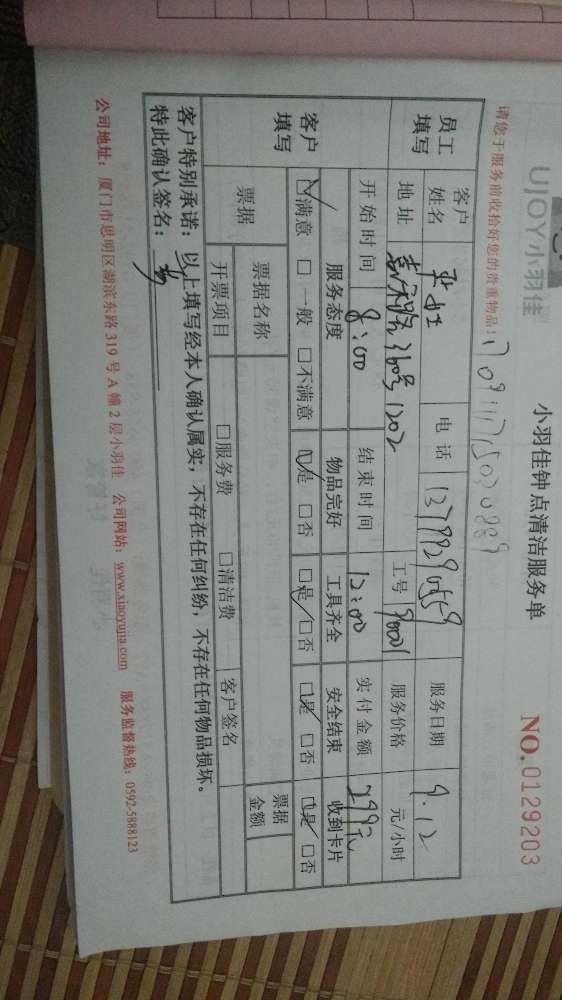 UJOY小羽佳
小羽佳钟点清洁服务单
NO.0129203
请您于服务前收拾好您的贵重物品!
员工填写
客户姓名
电话
服务日期 9.12
地址
360号1202
工号
服务价格 元/小时
开始时间 8:00 结束时间 12:00 实付金额
客户填写
服务态度 物品完好 工具齐全 安全结束 收到卡片
☑满意 □一般 □不满意 ☑是 □否 ☑是 □否 ☑是 □否 ☑是 □否
票据 票据名称 票据金额
开票项目 □服务费 □清洁费 客户签名
客户特别承诺:以上填写经本人确认属实,不存在任何纠纷,不存在任何物品损坏。
特此确认签名:
公司地址:厦门市思明区湖滨东路319号A幢2层小羽佳 公司网站:www.xiaoyujia.com 服务监督热线:0592-5888123